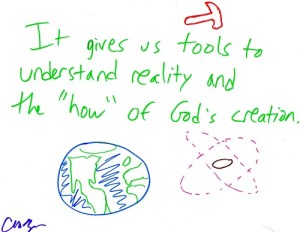 It gives us tools to
understand reality and
the "how" of God's creation.